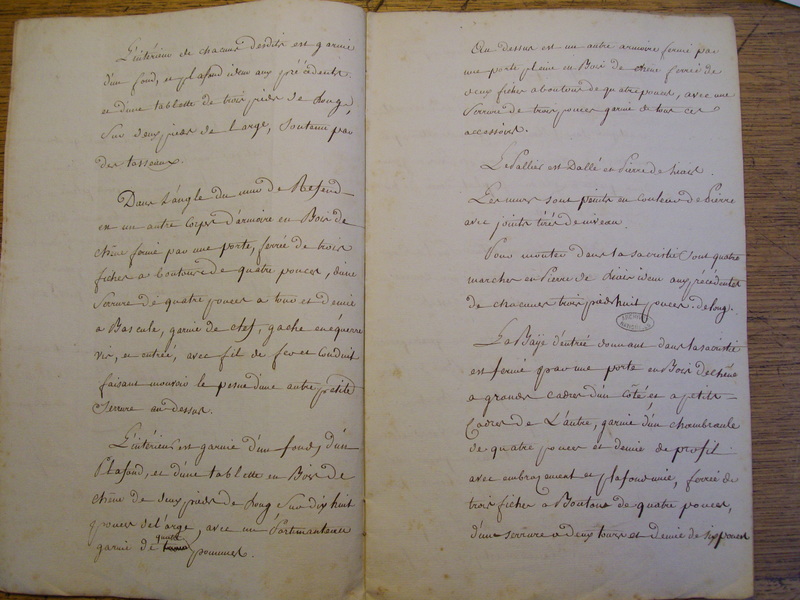 L'intérieur de chacune desdits est garnie
d'un fond, et plafond idem aux précédents.
et d'une tablette de trois pieds de Long,
Sur deux pieds de Large, Soutenue par
des tasseaux.
Dans L'angle du mur de Refend
est un autre Corps d'armoire en Bois de
chêne fermé par une porte, ferrée de trois
fiches a boutons de quatre pouces, d'une
Serrure de quatre pouces a tour et demie
a Bascule, garnie de clef, gache en équerre
vis, et entrée, avec fil de fer et Conduit
faisant mouvoir le pesne d'une autre petite
Serrure au dessus.
L'intérieur est garnie d'un fond, d'un
Plafond, et d'une tablette en Bois de
chêne de deux pieds de Long Sur dix huit
pouces de Large, avec un Portmanteau
garnie de quatre pommes.
Au dessus est un autre armoire fermé par
une porte pleine en Bois de chêne ferrée de
deux fiches a boutons de quatre pouces, avec une
Serrure de trois pouces garnie de tous ces
accessoirs.
Le Pallier est Dallé en Pierre de liais.
Les murs Sont peints en Couleur de Pierre
avec joints tirés de niveau.
Pour monter dans la sacristie Sont quatre
marches en Pierre de liais idem aux précédentes
de chacunes trois pieds huit pouces de long.
ARCHIVES
La Baÿe d'entrée donnant dans la sacristie
est fermé par une porte en Bois de chêne
a grands cadres d'un côté et a petits
Cadres de L'autre, garnie d'un chambranle
de quatre pouces et demie de profil
avec embrasement et plafond unie, ferrée de
trois fiches a Boutons de quatre pouces,
d'une serrure a deux tours et demie de six pouces